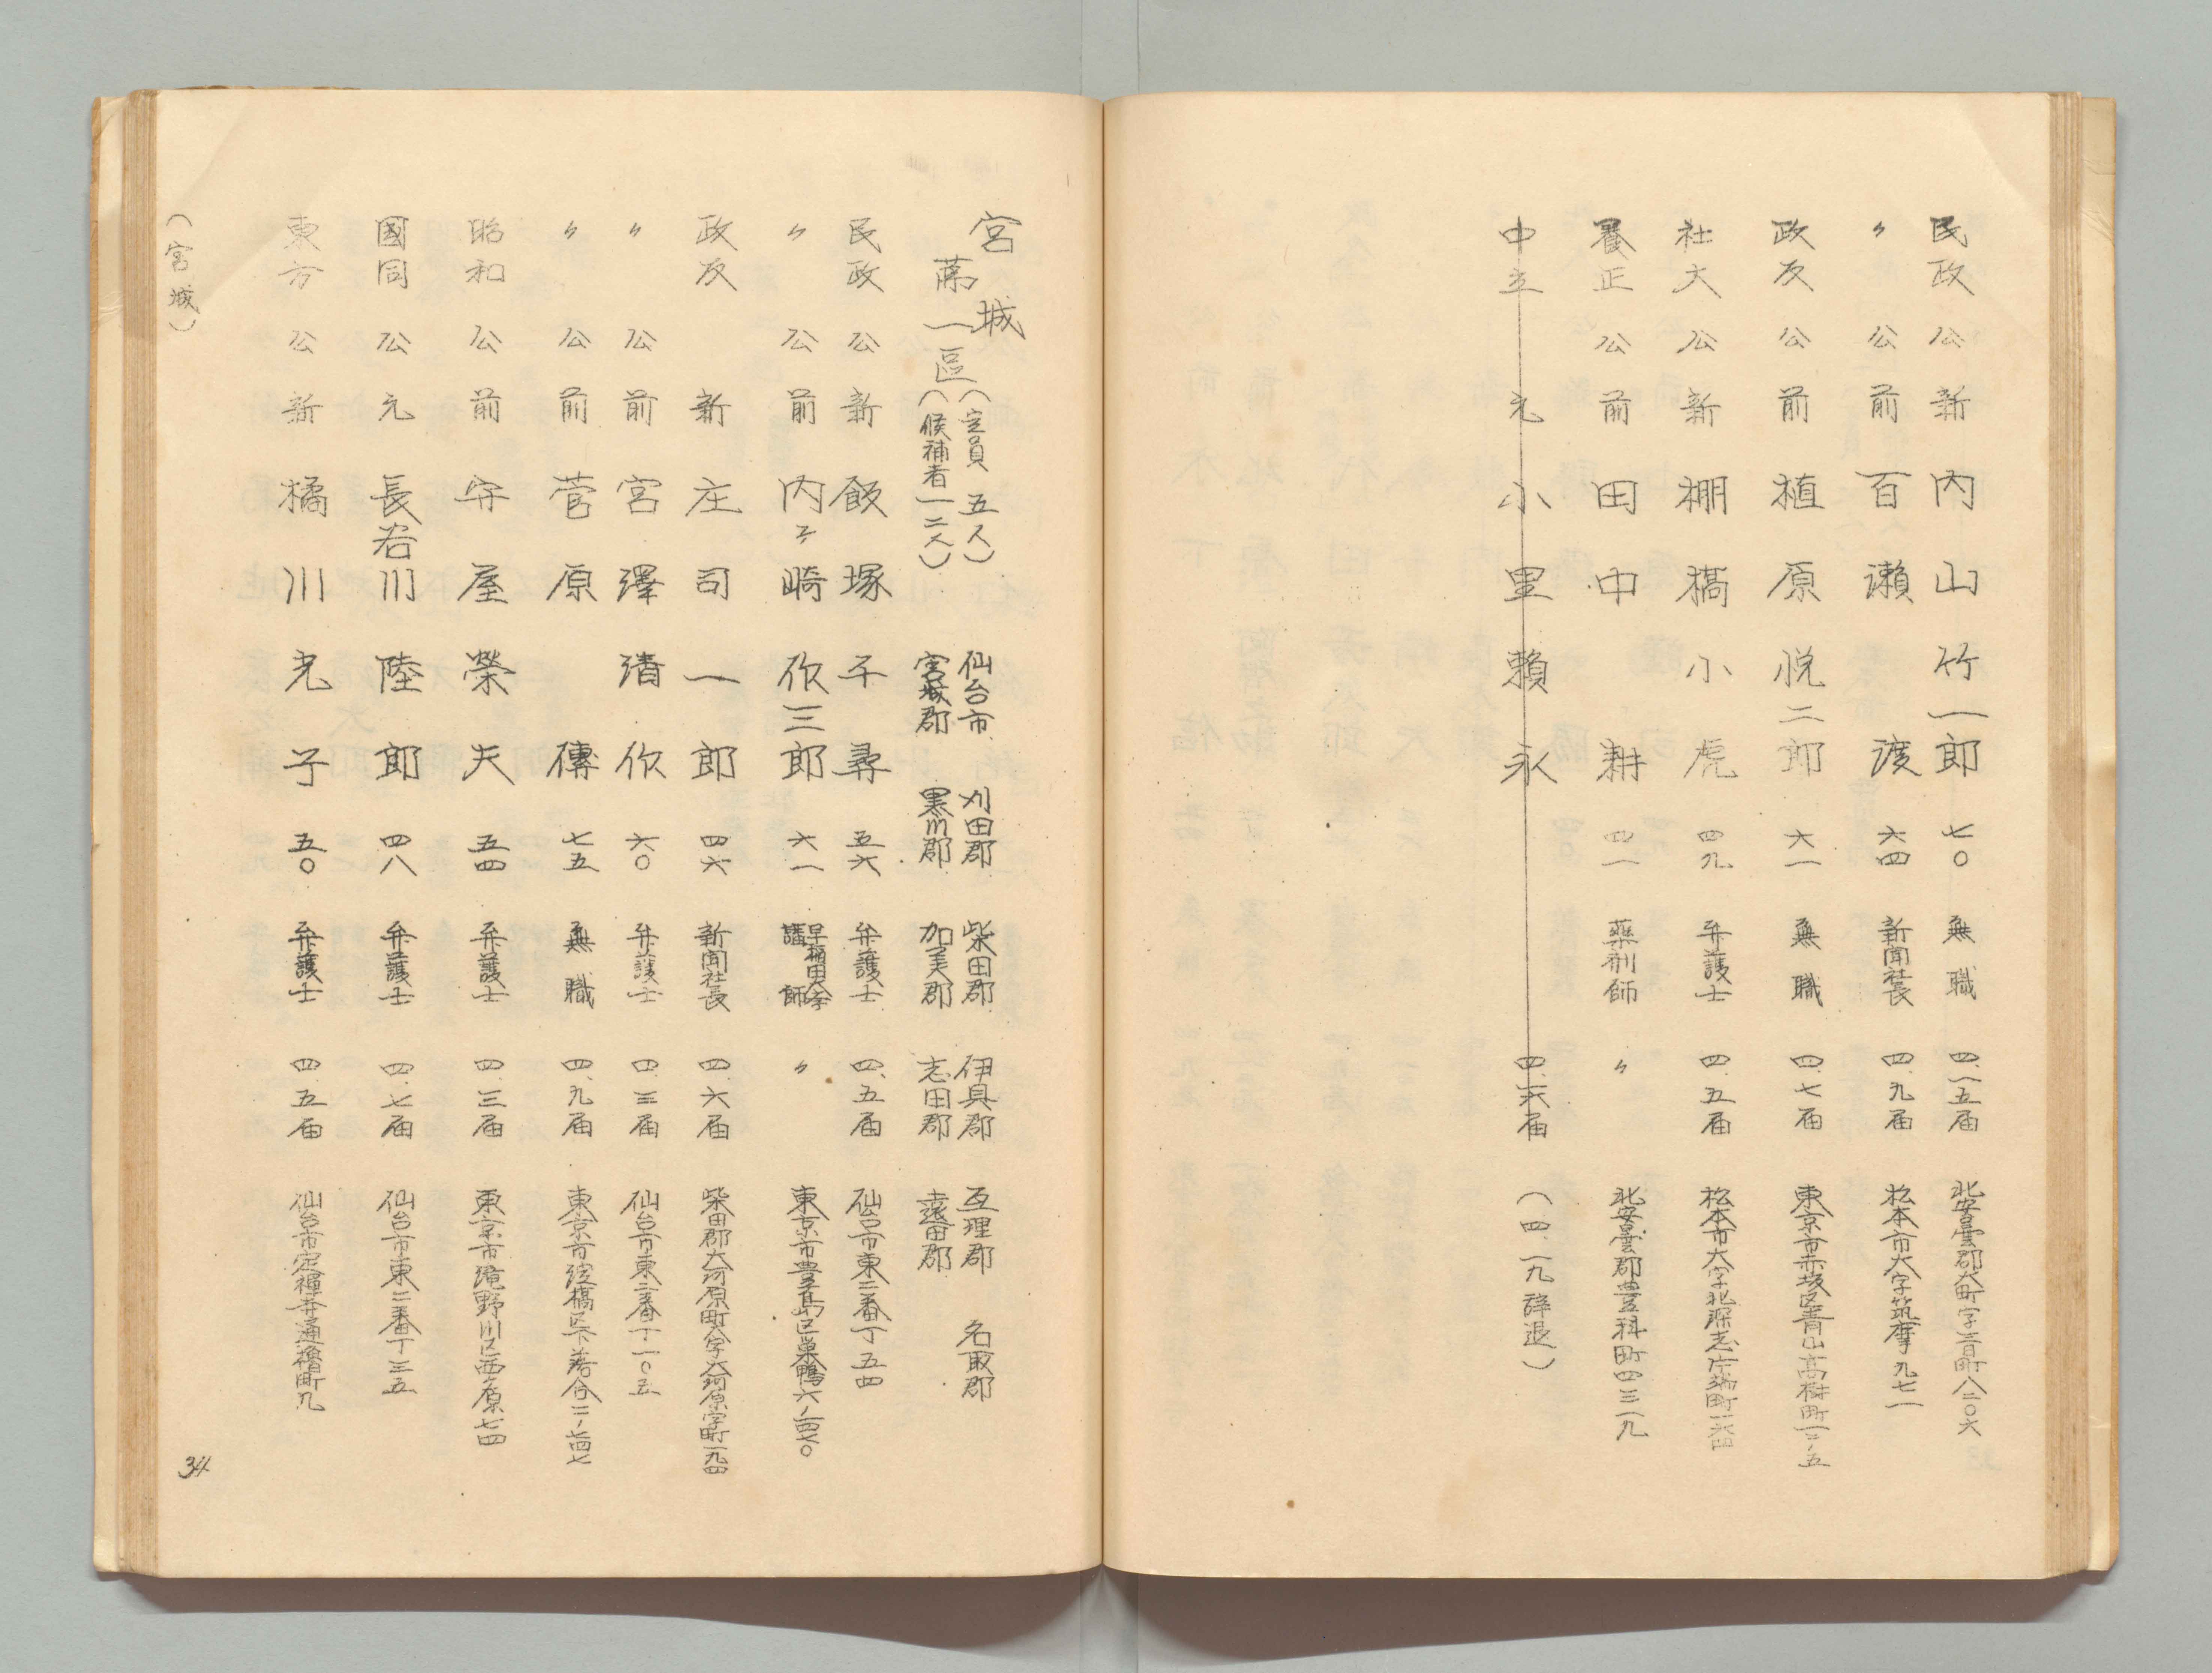 民政 公 新 内山竹一郎 七〇 無職 四.一五届 北安曇郡大町字三日町八二〇六
〃 公 前 百瀬渡 六四 新聞社長 四.九届 松本市大字筑摩九七一
政友 公 前 植原悦二郎 六一 無職 四.七届 東京市赤坂区青山高樹町一二ノ五
社大 公 新 棚橋小虎 四九 弁護士 四.五届 松本市大字北深志
養正 公 前 田中耕 四一 薬剤師 〃 北安曇郡豊科町四三一九
中立 元 小里頼永 四.六届 (四.一九辞退)
宮城
第一區 (定員 五人)
(候補者一二人)
仙台市 刈田郡 柴田郡 伊具郡 亙理郡 名取郡
宮城郡 黒川郡 加美郡 志田郡 遠田郡
民政 公 新 飯塚千尋 五六 弁護士 四.五届 仙台市東二番丁五四
〃 公 前 内ヶ崎作三郎 六一 早稲田大学講師 〃 東京市豊島区巣鴨六ノ一四七〇
政友 新 庄司一郎 四六 新聞社長 四.六届 柴田郡大河原町大字大河原字町一九四
〃 公 前 宮澤清作 六〇 弁護士 四.三届 仙台市東三番丁一〇五
〃 公 前 菅原傳 七五 無職 四.九届 東京市淀橋区下落合二ノ七四七
昭和 公 前 守屋榮夫 五四 弁護士 四.三届 東京市滝野川区西ヶ原七四
國同 公 元 長谷川陸郎 四八 弁護士 四.七届 仙台市東二番丁三五
東方 公 新 橘川光子 五〇 弁護士 四.五届 仙台市定禅寺通櫓町九
(宮城)
34